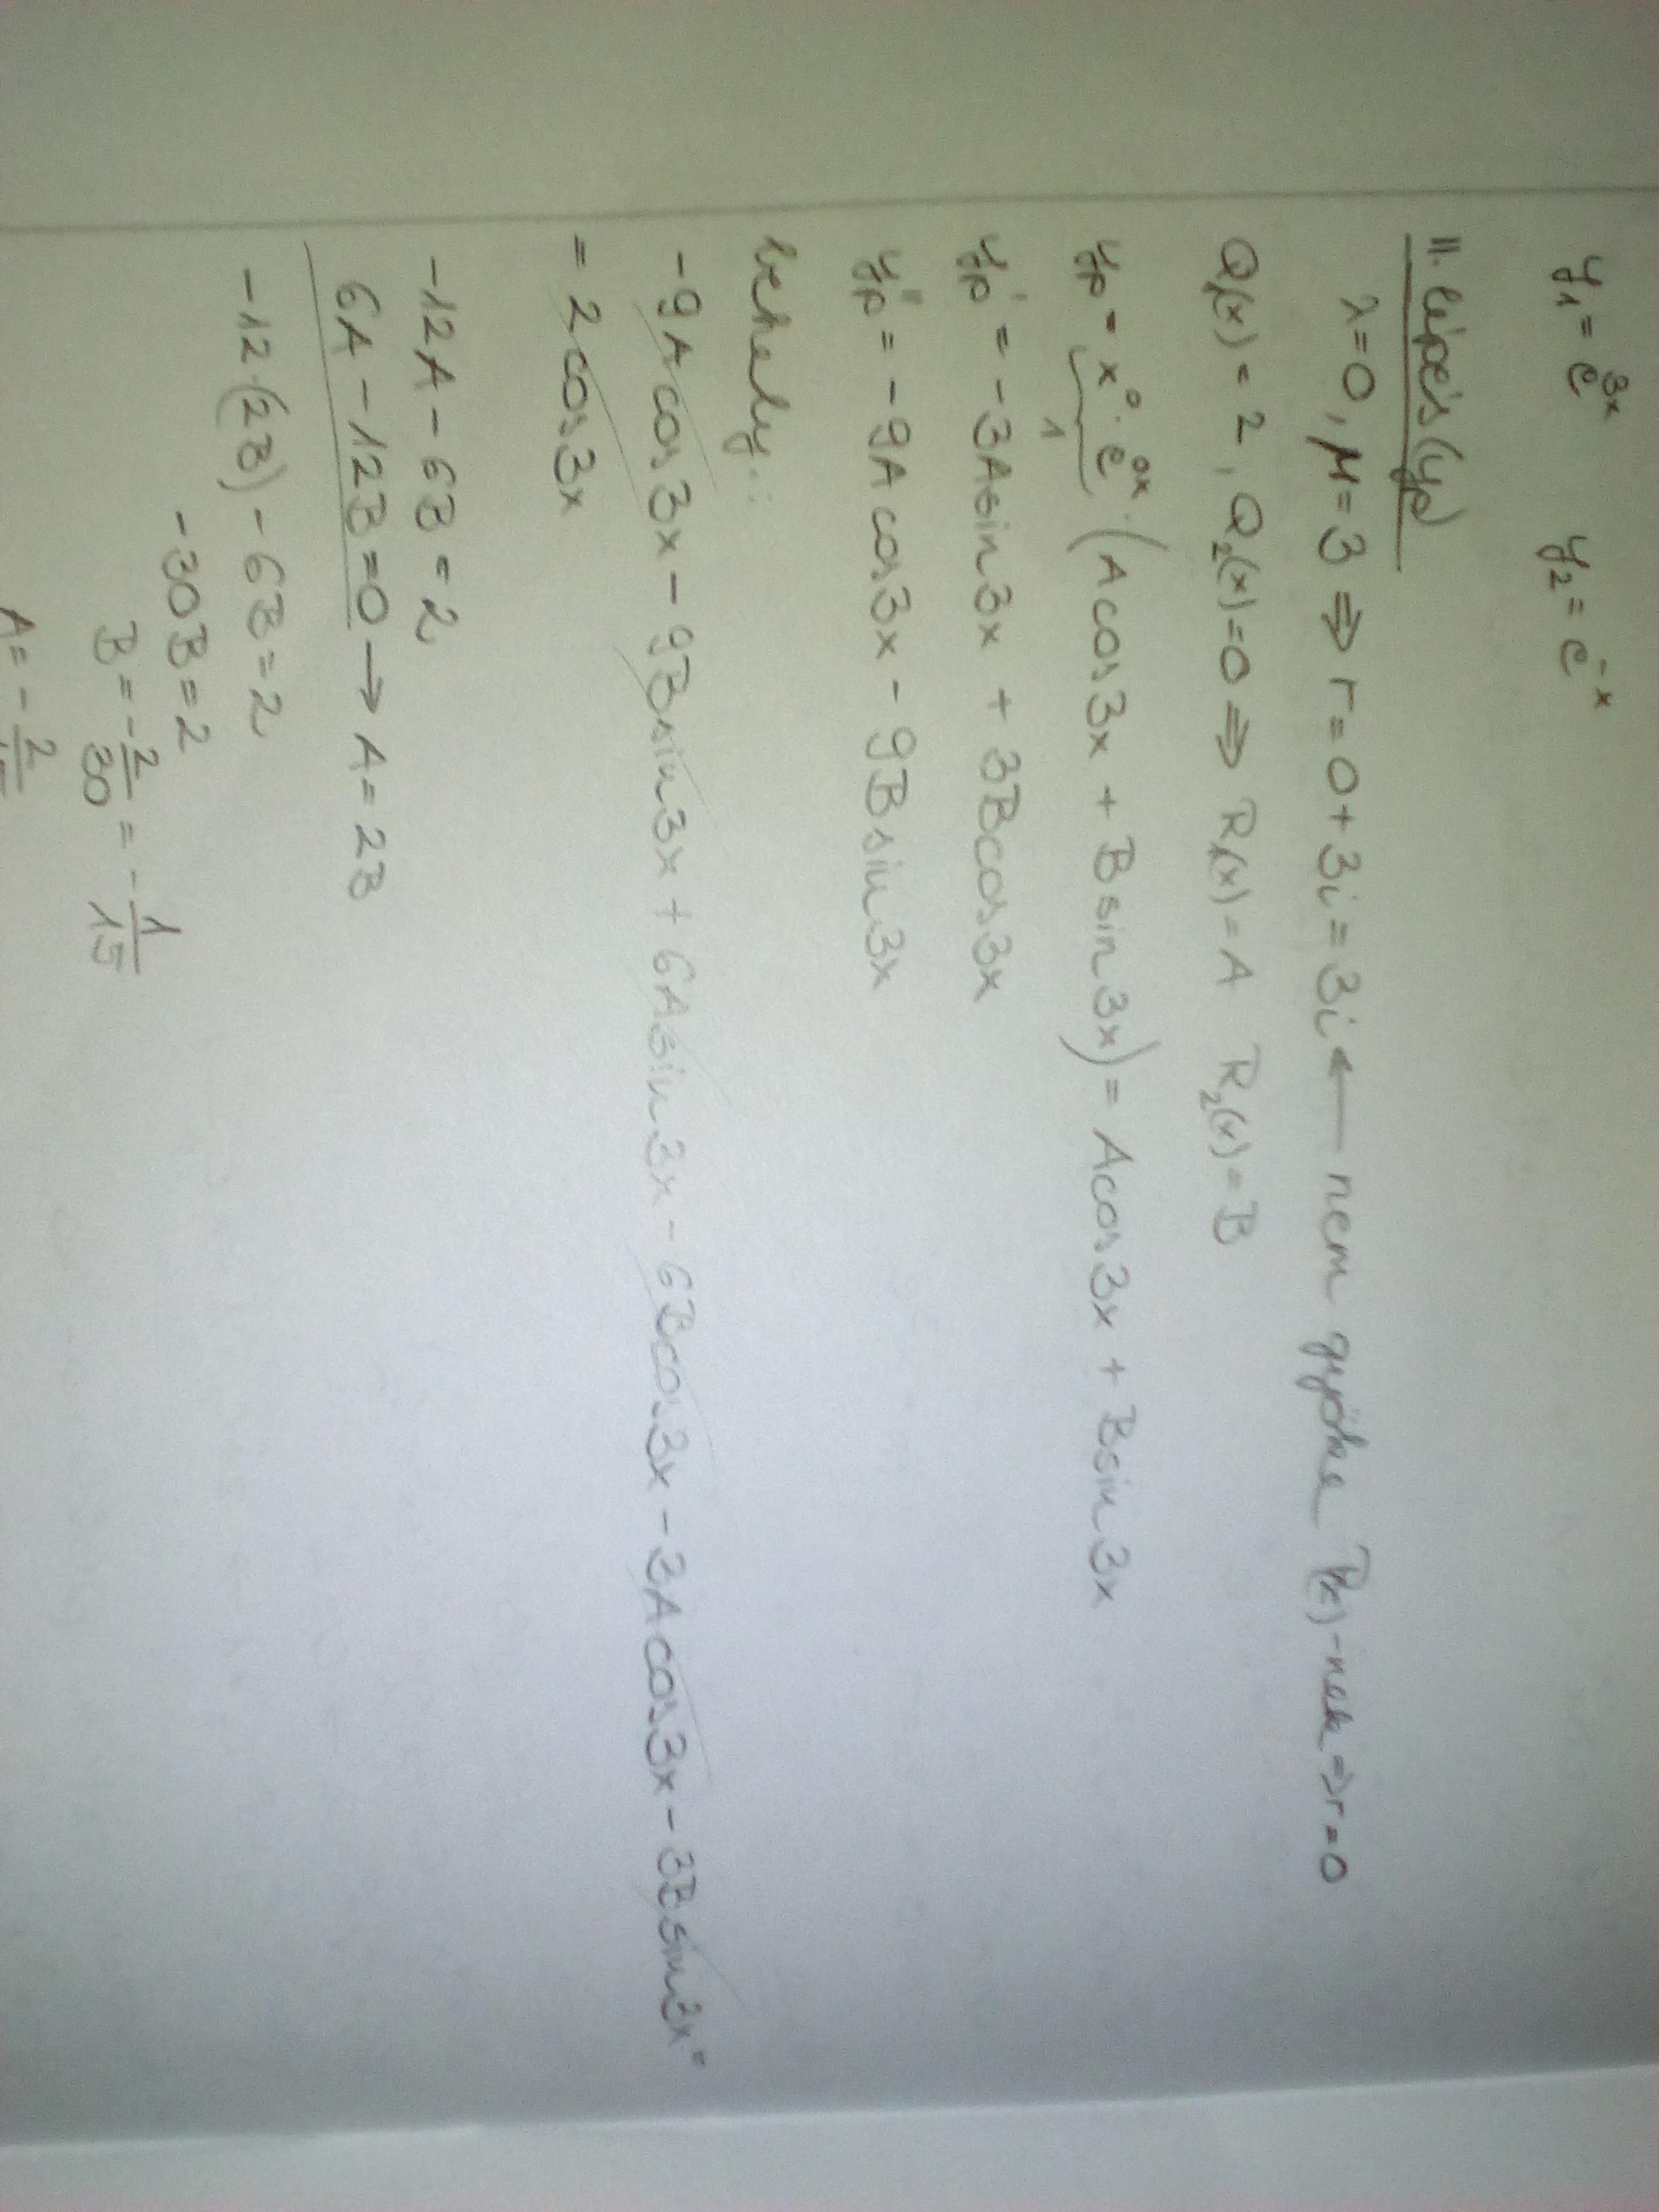 y₁ = e³ˣ   y₂ = e⁻ˣ
II. lépés (yp)
λ=0, μ=3 ⇒ r = 0+3i = 3i ← nem gyöke P(x)-nek ⇒ r=0
Q₁(x) = 2, Q₂(x)=0 ⇒ R₁(x) = A   R₂(x) = B
yp = x⁰ · e⁰ˣ · (A cos 3x + B sin 3x) = A cos 3x + B sin 3x
1
yp' = -3A sin 3x + 3B cos 3x
yp'' = -9A cos 3x - 9B sin 3x
behely.:
-9A cos 3x - 9B sin 3x + 6A sin 3x - 6B cos 3x - 3A cos 3x - 3B sin 3x =
= 2 cos 3x
-12A - 6B = 2
6A - 12B = 0 → A = 2B
-12·(2B) - 6B = 2
-30B = 2
B = -2/30 = -1/15
A = -2/15